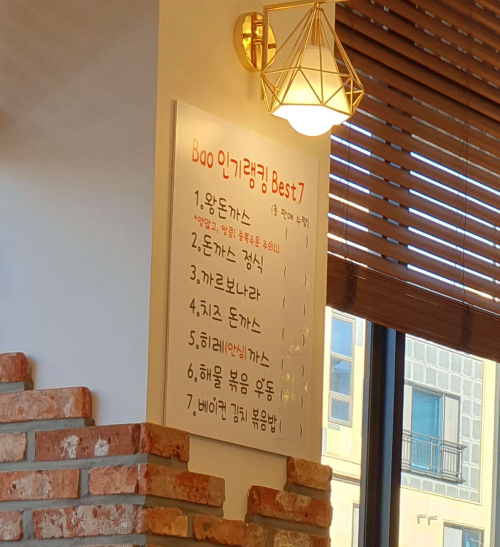 Bao 인기랭킹 Best 7
(총 판매 수량)
1. 왕돈까스 ( )
2. 돈까스 정식 ( )
3. 까르보나라 ( )
4. 치즈 돈까스 ( )
5. 히레(안심)까스 ( )
6. 해물 볶음 우동 ( )
7. 베이컨 김치 볶음밥 ( )